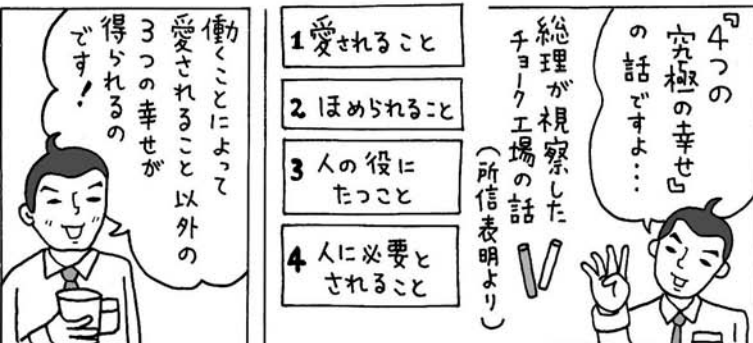 『4つの
究極の幸せ』
の話ですよ…
総理が視察した
チョーク工場の話
(所信表明より)
1 愛されること
2 ほめられること
3 人の役に
たつこと
4 人に必要と
されること
働くことによって
愛されること以外の
3つの幸せが
得られるの
です！